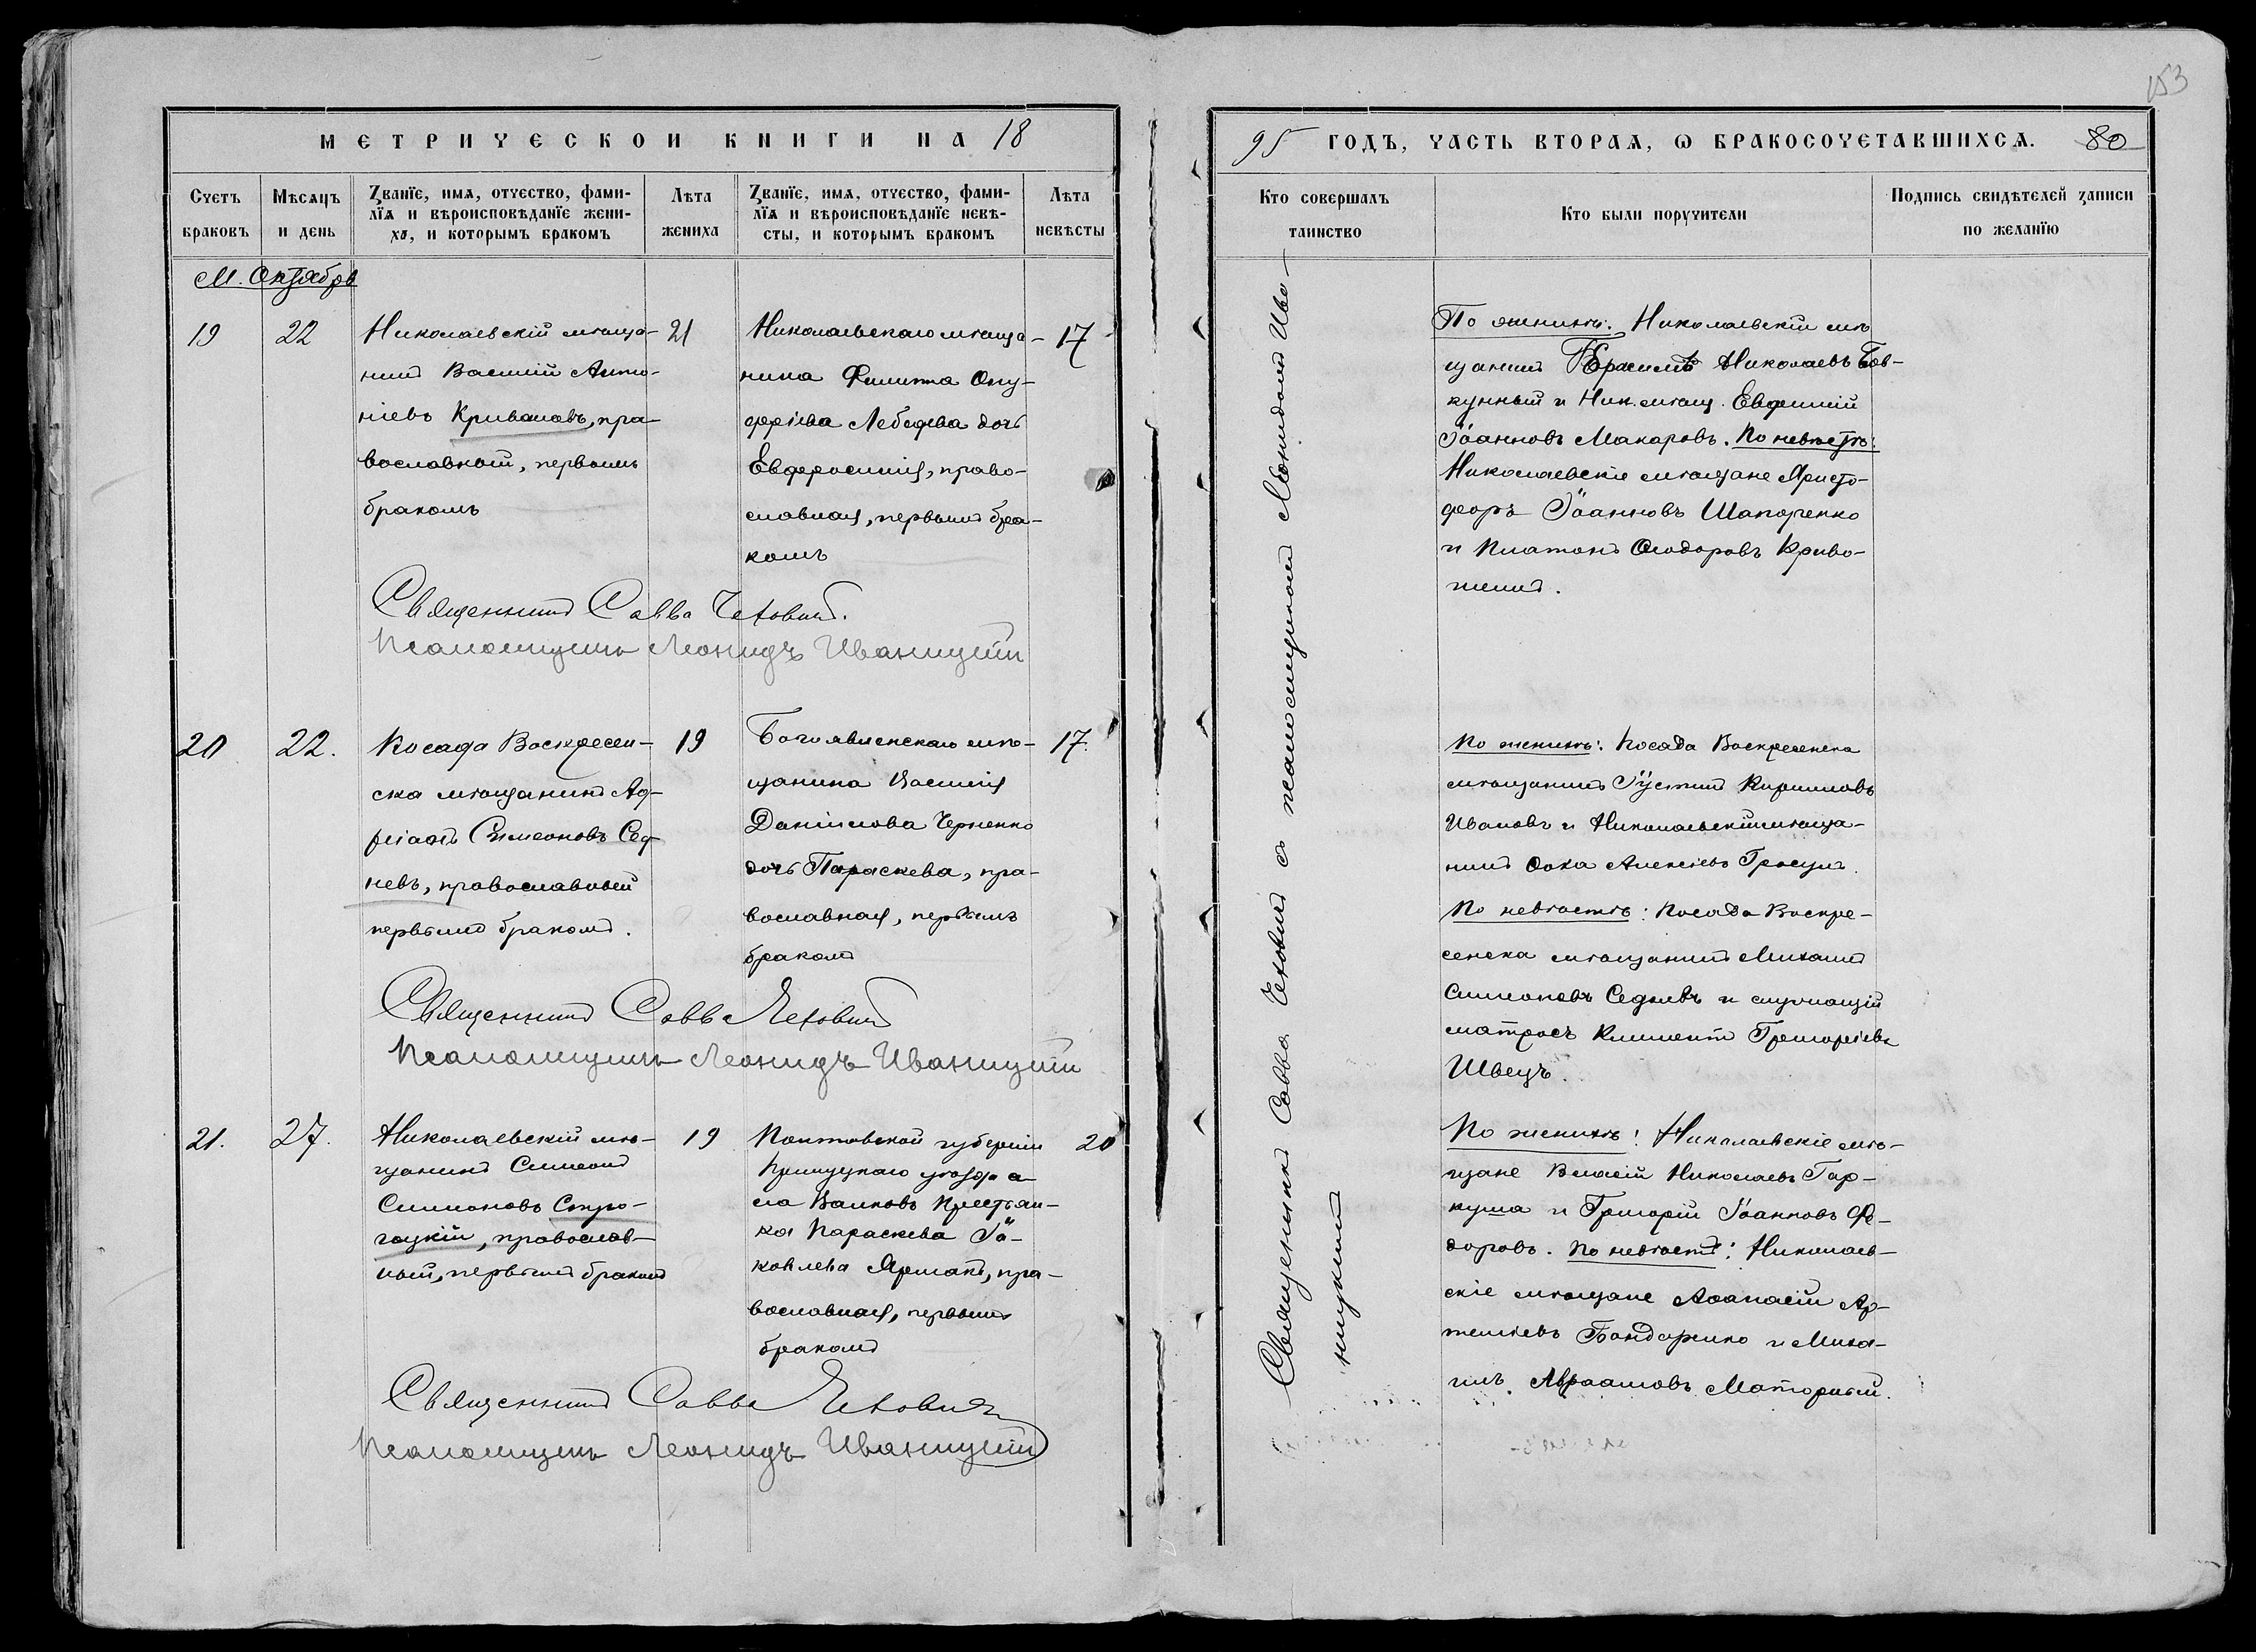 153
МЕТРИЧЕСКОИ КНИГИ НА 18
95 ГОДЪ, ЧАСТЬ ВТОРАѦ, Ѡ БРАКОСОЧЕТАВШИХСѦ. 80
Счетъ браковъ
Мѣсѧцъ и день
Званїе, имѧ, отчество, фами-
лїѧ и вѣроисповѣданїе жени-
ха, и которымъ бракомъ
Лѣта жениха
Званїе, имѧ, отчество, фами-
лїѧ и вѣроисповѣданїе невѣ-
сты, и которымъ бракомъ
Лѣта невѣсты
Кто совершалъ таинство
Кто были поручители
Подпись свидѣтелей записи
по желанїю
М. Октябрь
19
22
Николаевскій мѣща-
нинъ Василій Анто-
ніевъ Криваловъ, пра-
вославный, первымъ
бракомъ
21
Николаевскаго мѣща-
нина Филиппа Ону-
фріева Лебедева дочь
Евфросинія, право-
славная, первымъ бра-
комъ
17
По женихѣ: Николаевскій мѣ
щанинъ Герасимъ Николаевъ Бов-
кунный и Ник. мѣщ. Евфимій
Іоанновъ Макаровъ. По невѣстѣ:
Николаевскіе мѣщане Христо-
форъ Іоанновъ Шапоренко
и Платонъ Ѳеодоровъ Криво-
Священникъ Савва Чеховичъ.
Псаломщикъ Леонидъ Иваницкій
20
22.
Посада Воскресен-
ска мѣщанинъ Ад-
ріанъ Симеоновъ Сед-
невъ, православный
первымъ бракомъ.
19
Богоявленскаго мѣ-
щанина Василія
Даніилова Черненко
дочь Параскева, пра-
вославная, первымъ
бракомъ
17.
По женихѣ: Посада Воскресенска
мѣщанинъ Іустинъ Кирилловъ
Ивановъ и Николаевскій мѣща-
нинъ Ѳока Алексіевъ Гросулъ.
По невѣстѣ: Посада Воскре-
сенска мѣщанинъ Михаилъ
Симеоновъ Седневъ и служащій
матросъ Климентъ Григоріевъ
Швецъ.
Священникъ Савва Чеховичъ
Псаломщикъ Леонидъ Иваницкій
21.
27.
Николаевскій мѣ-
щанинъ Симеонъ
Симеоновъ Стро-
гоцкій, православ-
ный, первымъ бракомъ
19
Полтавской губерніи
Прилуцкаго уѣзда с-
ла Валковъ крестьян-
ка Параскева Іа-
ковлева Ярмакъ, пра-
вославная, первымъ
бракомъ
20
По женихѣ: Николаевскіе мѣ-
щане Власій Николаевъ Гар-
куша и Григорій Іоанновъ Ѳе-
доровъ. По невѣстѣ: Николаев-
скіе мѣщане Аѳанасій Ар-
теміевъ Бондаренко и Миха-
илъ Авраамовъ Маторный.
Священникъ Савва Чеховичъ
Псаломщикъ Леонидъ Иваницкій
Священникъ Савва Чеховичъ съ псаломщикомъ Леонидомъ Ива-
ницкимъ